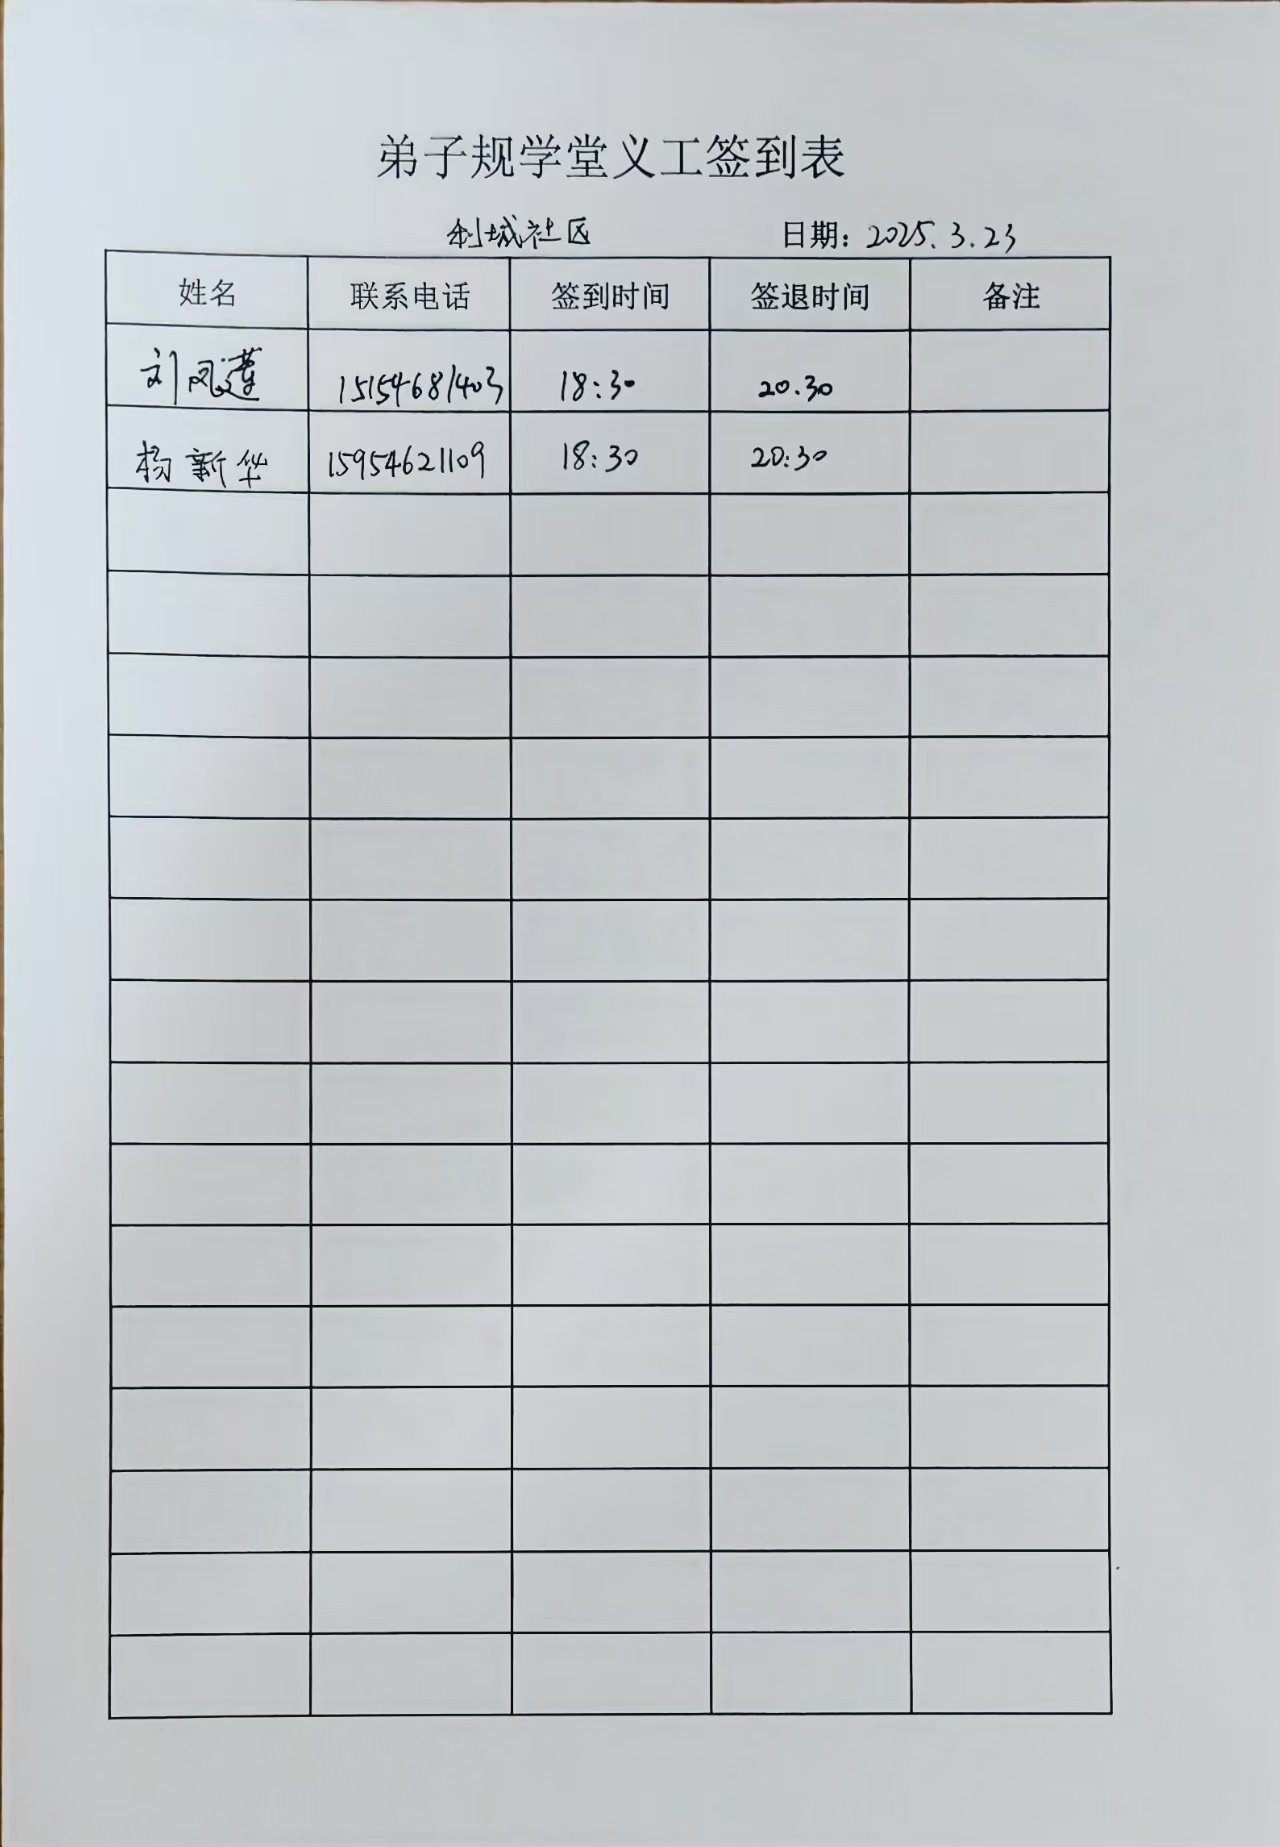 弟子规学堂义工签到表
创城社区 日期：2025.3.23
姓名 联系电话 签到时间 签退时间 备注
刘凤莲 15154681403 18:30 20.30
杨新华 15954621109 18:30 20:30